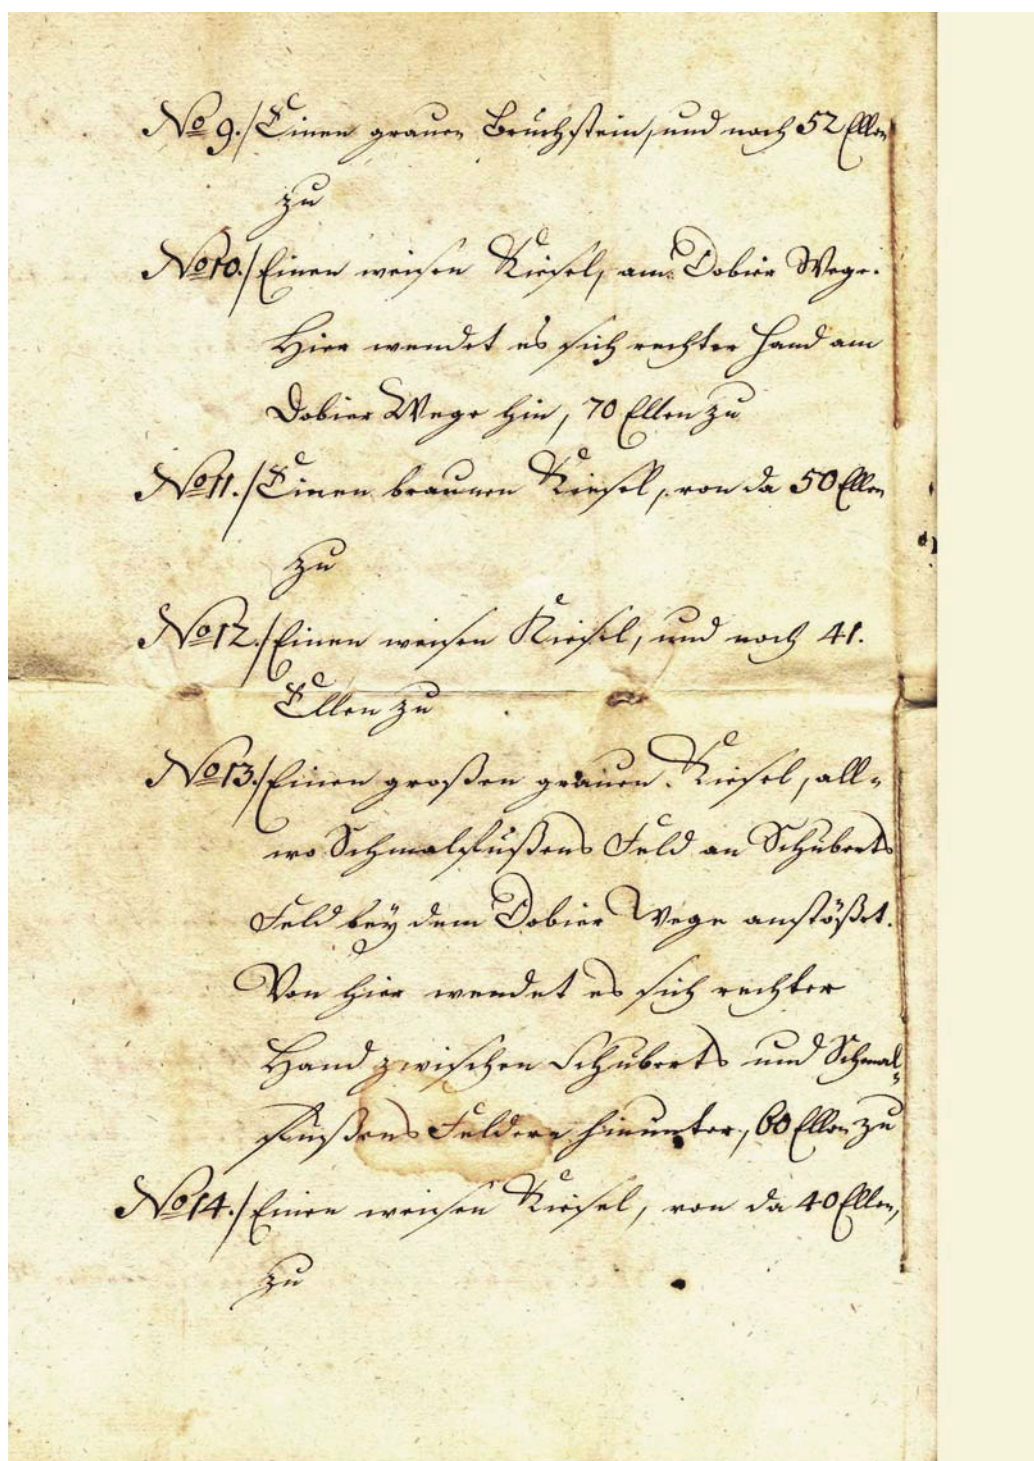 No 9./ Einen grauen Bruchstein, und noch 52 Ellen
zu
No 10./ Einen weisen Kiesel, am Dobier Wege.
Hier wendet es sich rechter Hand am
Dobier Wege hin, 70 Ellen zu
No 11./ Einen braunen Kiesel, von da 50 Ellen
zu
No 12./ Einen weisen Kiesel, und noch 41.
Ellen zu
No 13./ Einen großen grauen Kiesel, all-
wo Schmalfußens Feld an Schuberts
Feld bey dem Dobier Wege anstößet.
Von hier wendet es sich rechter
Hand zwischen Schuberts und Schmal-
fußens Feldern hinunter, 60 Ellen zu
No 14./ Einen weisen Kiesel, von da 40 Ellen,
zu